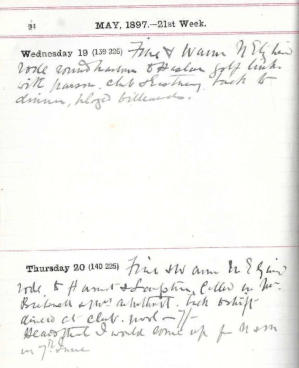 MAY, 1897.—21st Week.
Wednesday 19 (139 226) Fine & Warm N E by wind
rode round harbour to Haslar golf links
with parson. club & Eastney. back to
dinner, played billiards.
Thursday 20 (140 225) Fine & Warm N E by wind
rode to Havant & called on Mr.
& Mrs back to ship
dined at club. pool — 7/-
Heard that I would come up for
on 7th June